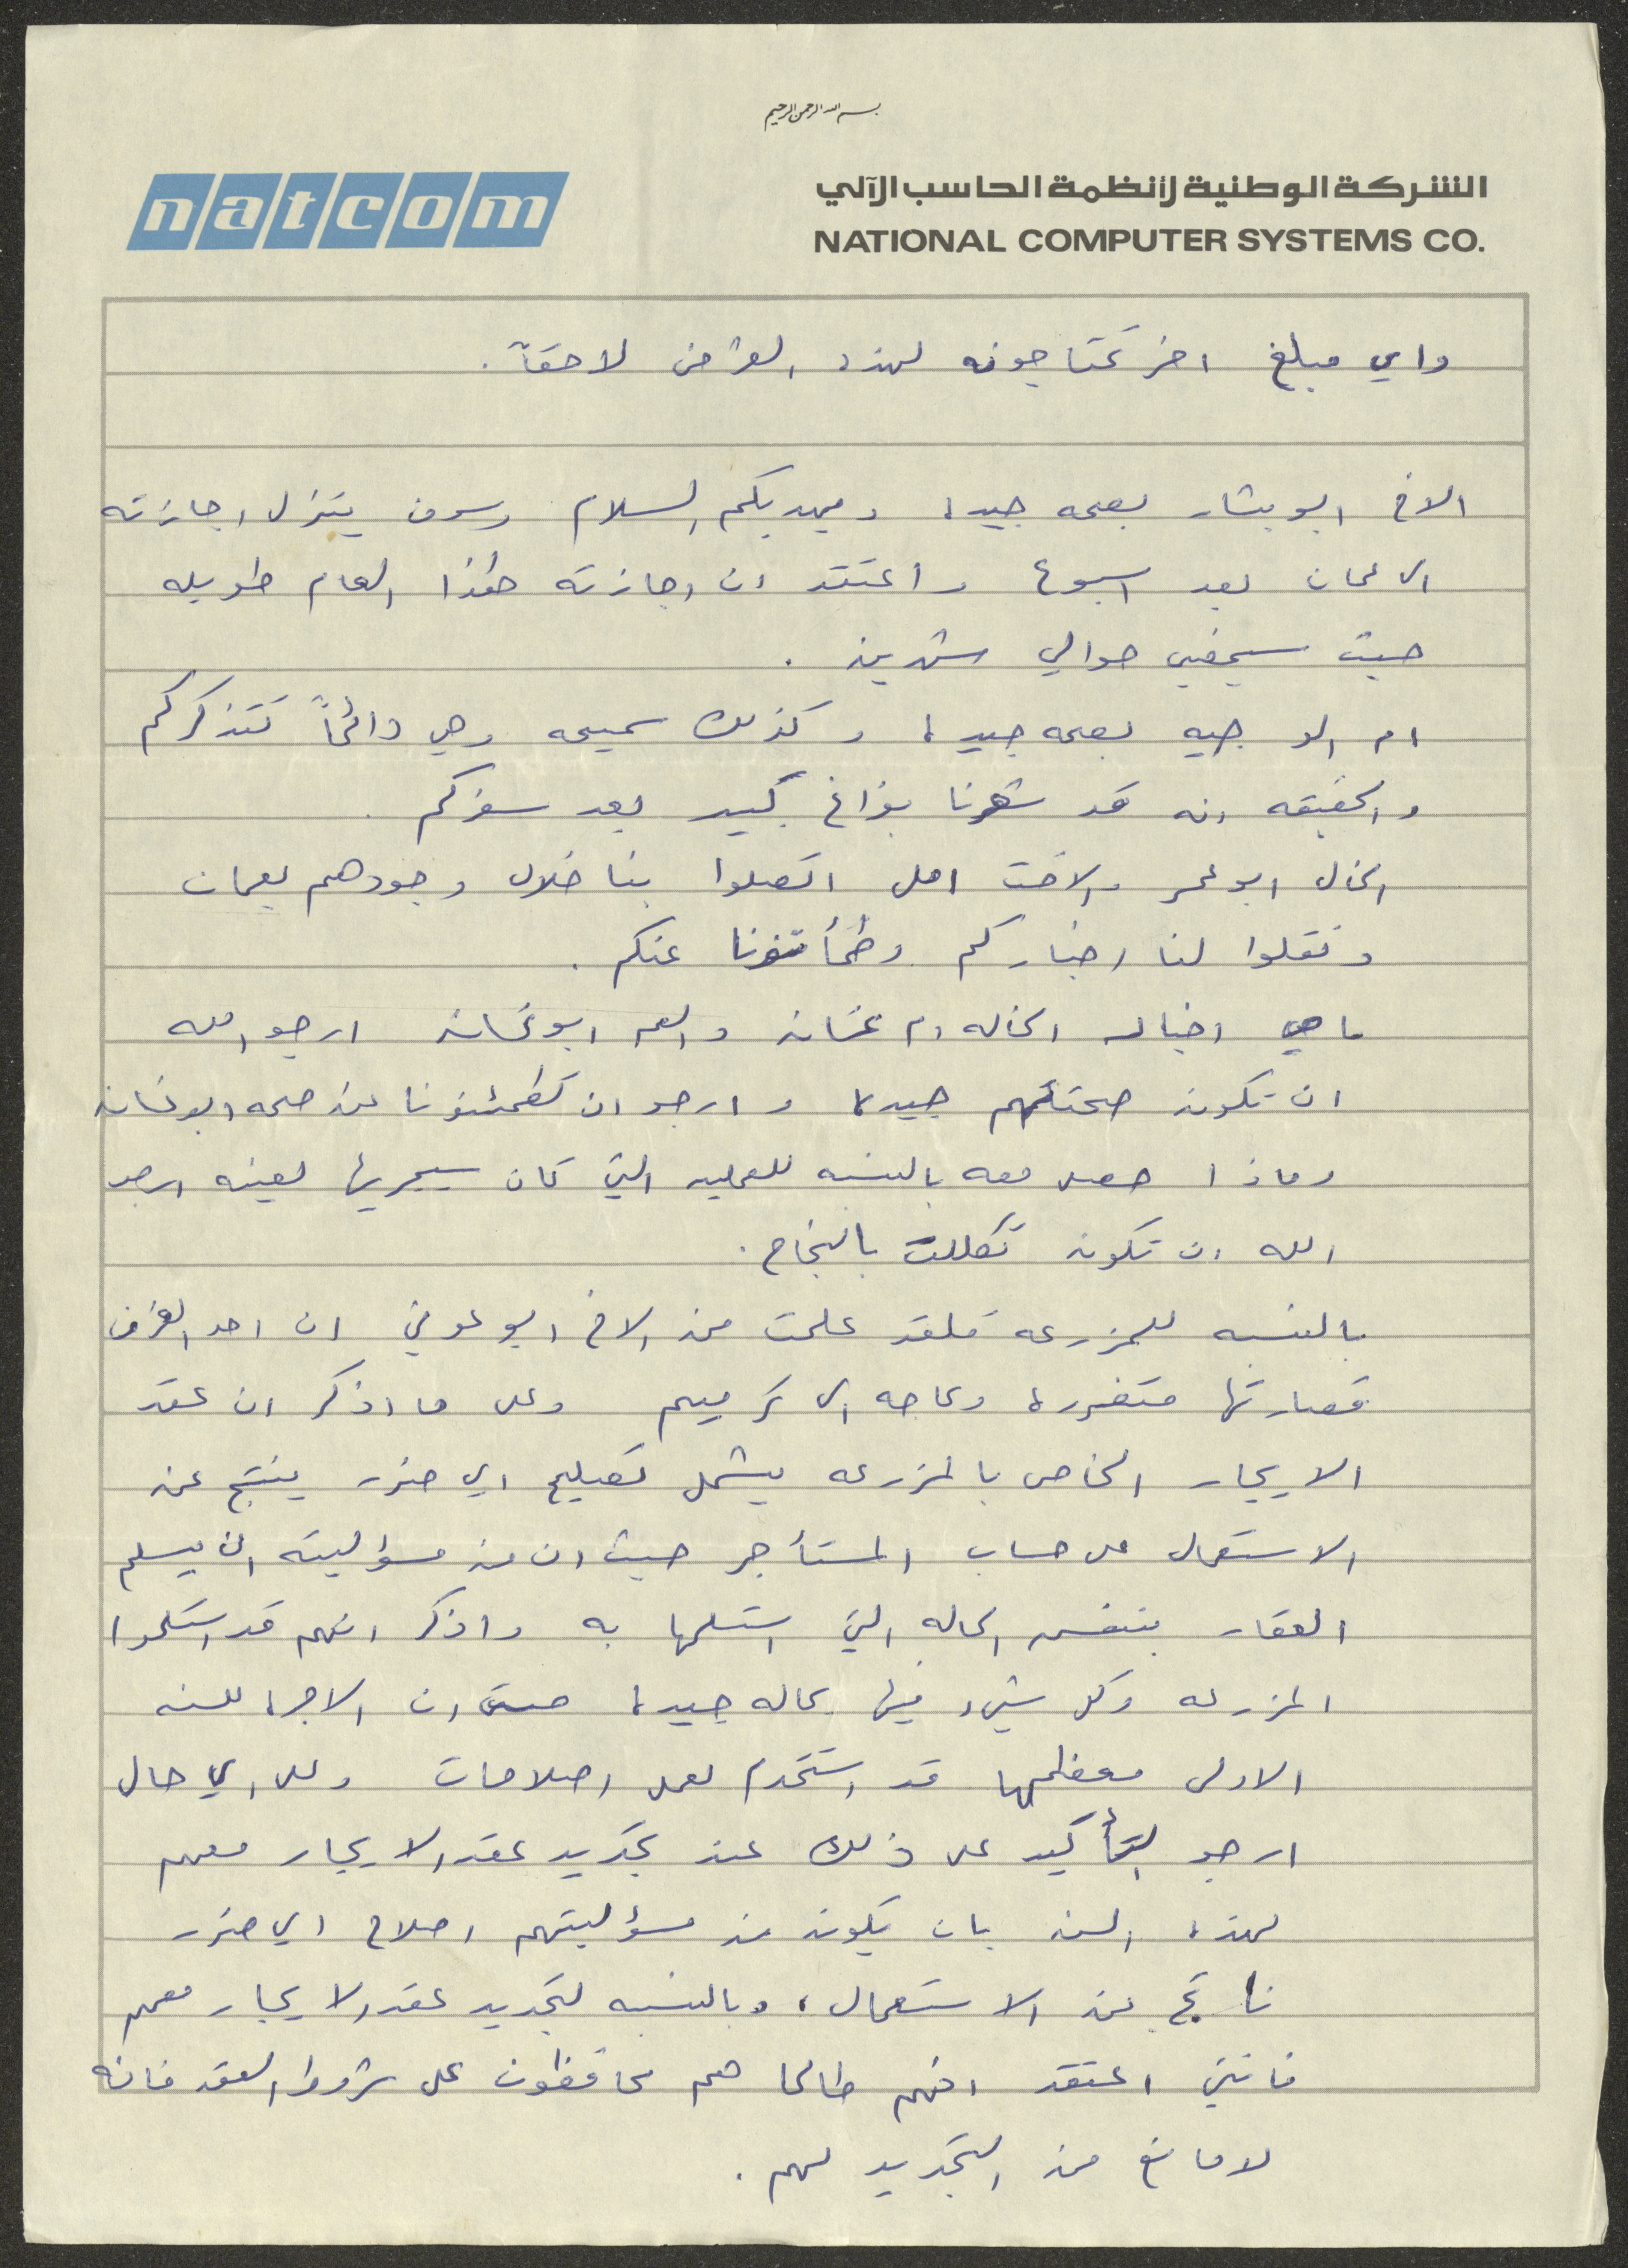 بسم الله الرحمن الرحيم
natcom
الشركة الوطنية لأنظمة الحاسب الآلي
NATIONAL COMPUTER SYSTEMS CO.
واي مبلغ اخر تحتاجونه لهذا الغرض لاحقاً.
الاخ ابو بشار بصحه جيده ويهديكم السلام وسوف ينزل اجازته
الى عمان بعد اسبوع واعتقد ان اجازته هذا العام طويله
حيث سيمضي حوالي شهرين .
ام الوجيه بصحه جيده وكذلك سميحه وهي دائماً تتذكركم
والحقيقه انه قد شعرنا بفراغ كبير بعد سفركم .
الخال ابو عمر والاخت امل اتصلوا بنا خلال وجودهم بعمان
ونقلوا لنا اخباركم وطمأنونا عنكم .
ما هي اخبار الخاله ام غسان والعم ابو غسان ارجو الله
ان تكون صحتهم جيده وارجو ان تطمئنونا عن صحه ابو غسان
وماذا حصل معه بالنسبه للعمليه التي كان سيجريها لعينه ارجو
الله ان تكون تكللت بالنجاح .
بالنسبه للمزرعه فلقد علمت من الاخ ابو عوني ان احد الغرف
قصارتها متضرره وبحاجه الى ترميم وعلى ما اذكر ان عقد
الايجار الخاص بالمزرعه يشمل تصليح اي ضرر ينتج عن
الاستعمال على حساب المستأجر حيث ان من مسؤوليته ان يسلم
العقار بنفس الحاله التي استلمها به واذكر انهم قد استلموا
المزرعه وكل شيء فيها بحاله جيده حتى ان الاجره للسنه
الاولى معظمها قد استخدم لعمل اصلاحات وعلى اي حال
ارجو التأكيد على ذلك عند تجديد عقد الايجار معهم
لهذه السنه بان يكون من مسؤليتهم اصلاح اي ضرر
ناتج عن الاستعمال ، وبالنسبه لتجديد عقد الايجار معهم
فانني اعتقد انهم طالما هم محافظون على شروط العقد فانه
لا مانع من التجديد لهم .